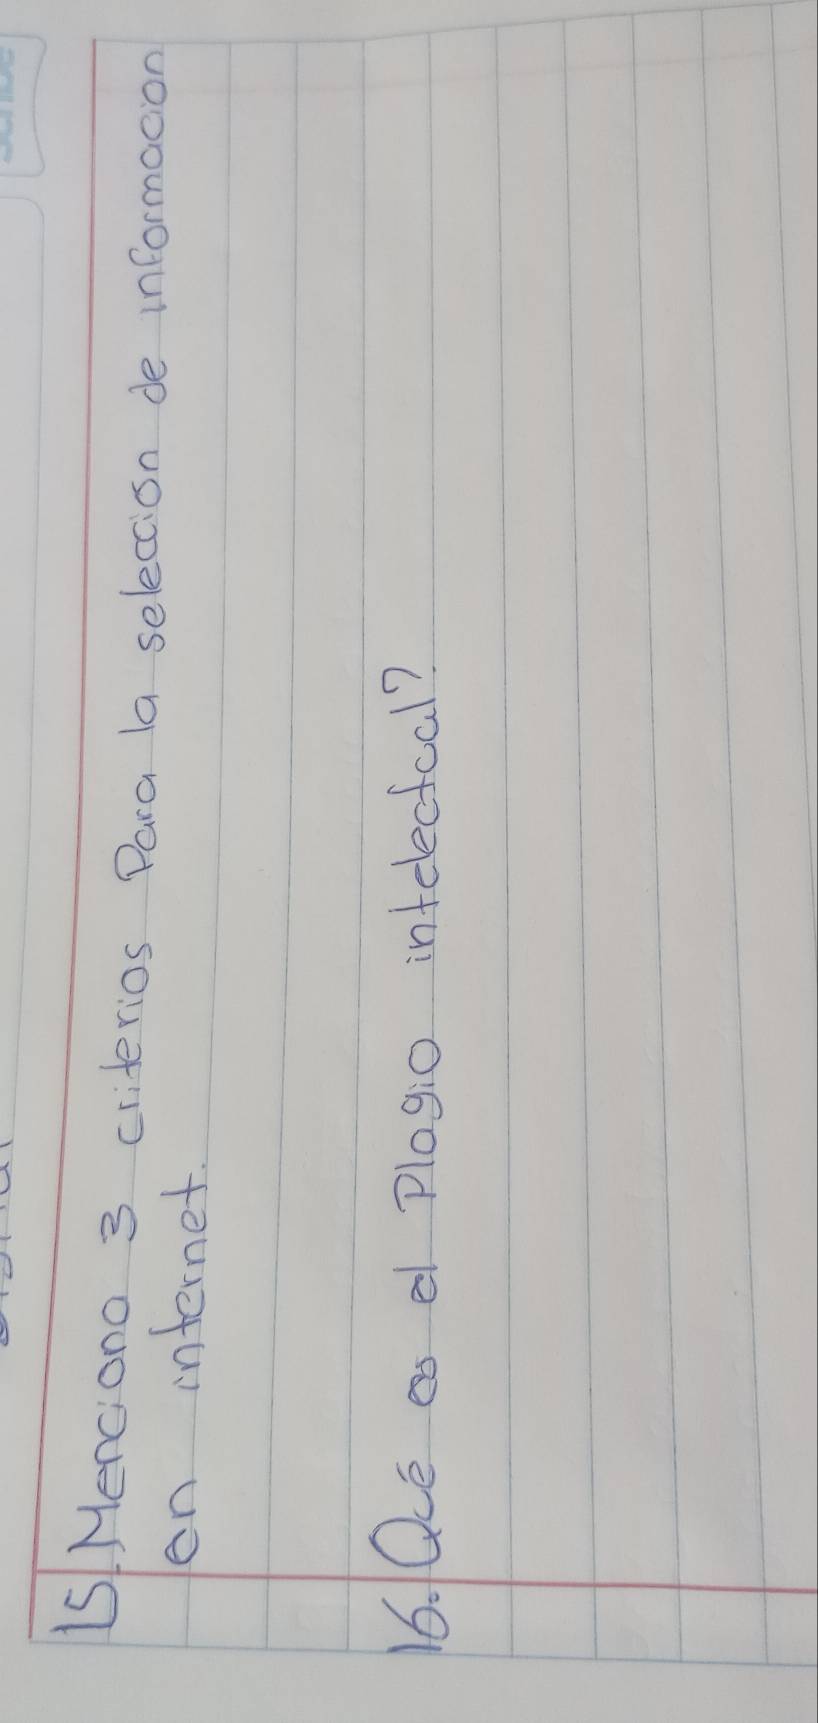 15. Menciona 3 criterios Para la selección de informacion
en internet.
16. Qué es el Plagio intelectual?